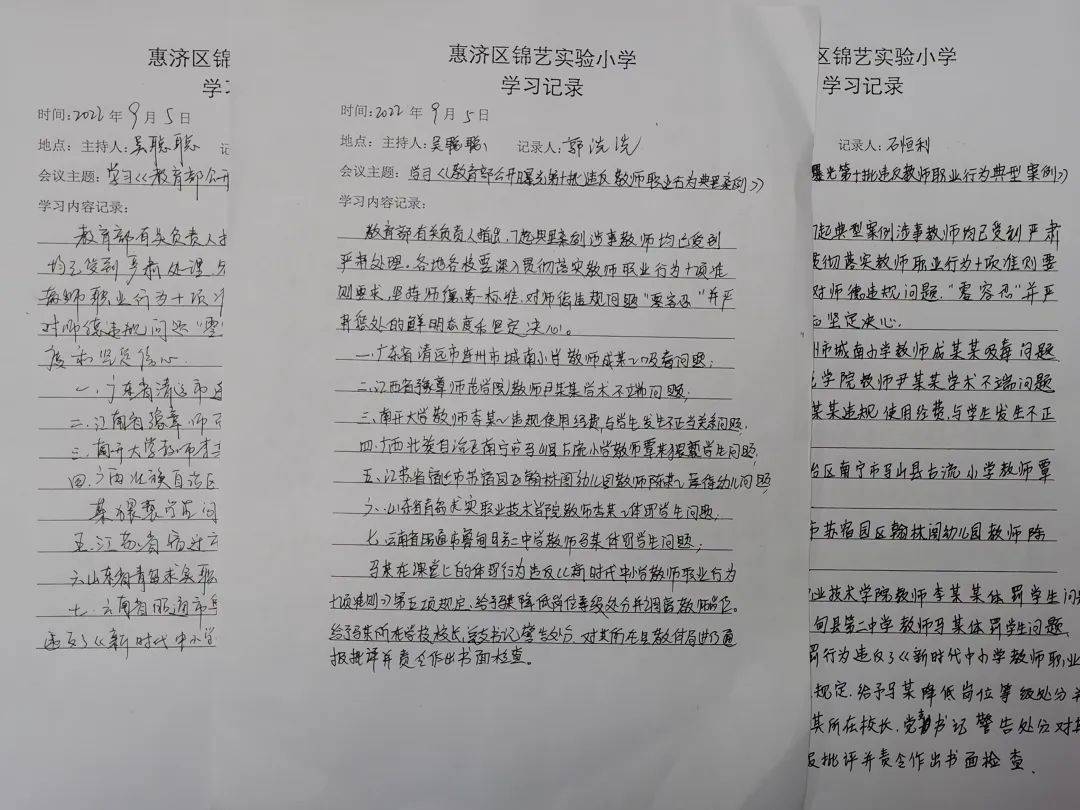 惠济区锦
学
时间:2022年9月5日
地点: 主持人:吴聪聪 记
会议主题:学习《教育部公开
学习内容记录:
教育部有关负责人
均已受到严肃处理
教师职业行为十项准
对师德违规问题“零
度和坚定信心
一.广东省清远市连
二.江南省豫章师范
三.南开大学教师李
四.广西壮族自治区
某猥亵学生问
五.江苏省宿迁市
六.山东省青岛求实职
七.云南省昭通市
违反了《新时代中小学
惠济区锦艺实验小学
学习记录
时间:2022年9月5日
地点: 主持人:吴聪聪 记录人:郭洗洗
会议主题:学习《教育部公开曝光第十批违反教师职业行为典型案例》
学习内容记录:
教育部有关负责人指出,7起典型案例涉事教师均已受到
严肃处理。各地各校要深入贯彻落实教师职业行为十项准
则要求,坚持师德第一标准,对师德违规问题“零容忍”并严
肃惩处的鲜明态度和坚定决心。
一.广东省清远市连州市城南小学教师成某某吸毒问题;
二.江西省豫章师范学院教师尹某某学术不端问题;
三.南开大学教师李某某违规使用经费,与学生发生不正当关系问题.
四.广西壮族自治区南宁市马山县古流小学教师覃某猥亵学生问题;
五.江苏省宿迁市苏宿园区翰林阁幼儿园教师陈某某虐待幼儿问题;
六.山东省青岛求实职业技术学院教师李某某体罚学生问题;
七.云南省昭通市鲁甸县第二中学教师马某体罚学生问题;
马某在课堂上的体罚行为违反《新时代中小学教师职业行为
十项准则》第五项规定.给予马某降低岗位等级处分并调离教师岗位。
给予马某所在学校校长,党支书记警告处分,对其所在县教体局进行通
报批评并责令作出书面检查。
区锦艺实验小学
学习记录
记录人:石恒利
曝光第十批违反教师职业行为典型案例》
7起典型案例涉事教师均已受到严肃
贯彻落实教师职业行为十项准则要
对师德违规问题.“零容忍”并严
和坚定决心.
州市城南小学教师成某某吸毒问题
范学院教师尹某某学术不端问题
某某违规使用经费,与学生发生不正
治区南宁市马山县古流小学教师覃
市苏宿园区翰林阁幼儿园教师陈
业技术学院教师李某某体罚学生问
甸县第二中学教师马某体罚学生问题
罚行为违反了《新时代中小学教师职业
规定.给予马某降低岗位等级处分并
某所在校长,党书记警告处分对其
报批评并责令作出书面检查.